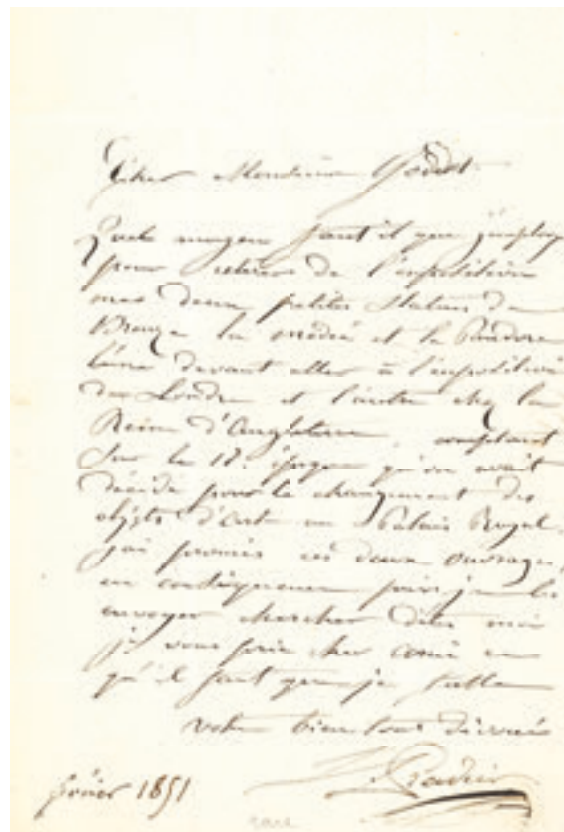 Cher Monsieur Godde
Quel moyen faut il que j'employ
pour retirer de l'exposition
mes deux petites Statues de
Bronze la médée et la Pandore
l'une devant aller à l'exposition
de Londre et l'autre chez la
Reine d'Angleterre, comptant
Sur le 18. époque qu'on avait
décidé pour le changement des
objets d'art au Palais Royal.
j'ai promis ces deux ouvrages,
en conséquence puis-je les
envoyer chercher dites moi
je vous prie cher ami ce
qu'il faut que je fasse
votre bien tout dévoué
J. Pradier
février 1851
rare